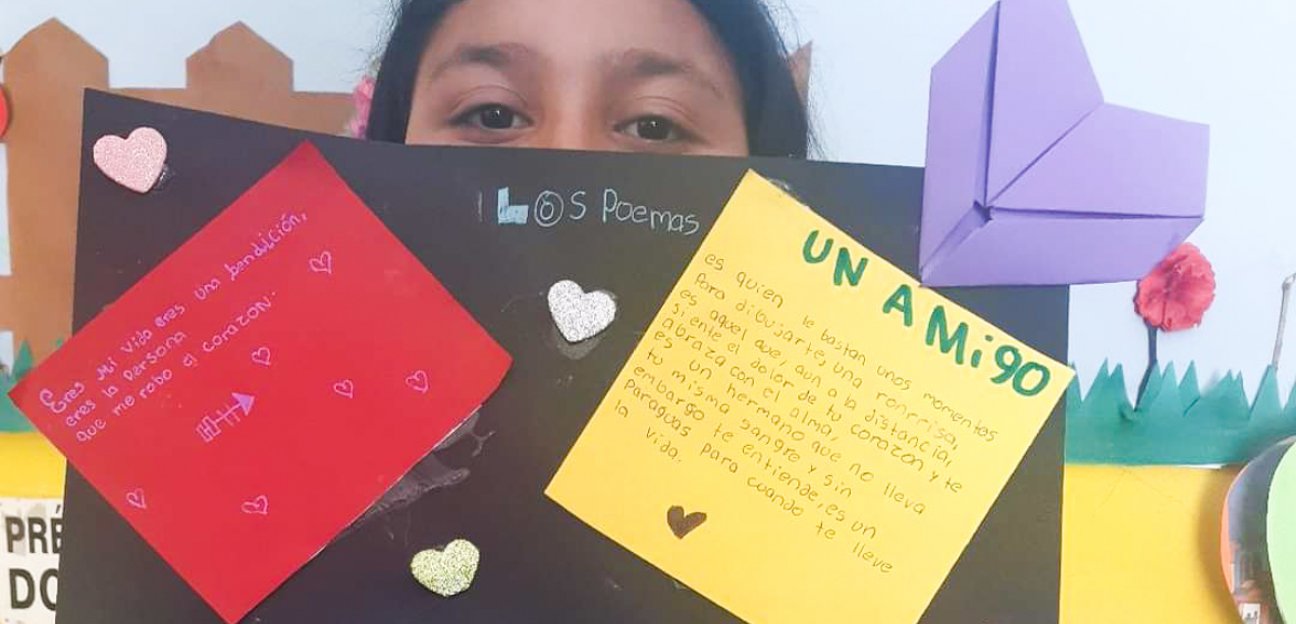 LOS Poemas
Eres Mi Vida eres una bendición,
eres la Persona
que me robo el corazon.
UN AMigO
es quien le bastan unos momentos
Para dibujarte, una ronrrisa,
es aquel que, aun a la distancia,
siente el dolor de tu corazon y te
abraza con el alma,
es un hermano que no lleva
tu misma sangre y sin
embargo te entiende, es un
Paraguas para cuando te lleve
la vida.
PRÉ
DO